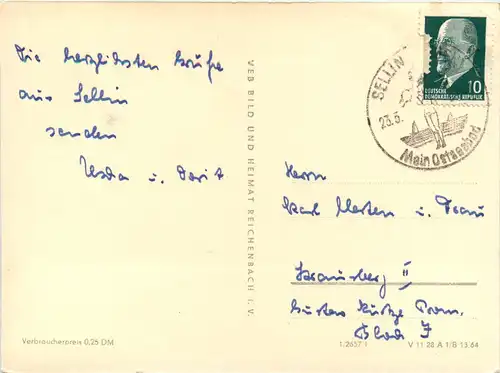 Die herzlichsten Grüße
aus Sellin
senden
u. Dorit
VEB BILD UND HEIMAT REICHENBACH i. V.
10
DEUTSCHE
DEMOKRATISCHE REPUBLIK
SELLIN
23.5.
Mein Ostseebad
Herrn
Karl Merten u. Frau
Strausberg II
Gustav Kurtze Prom.
Block
Verbraucherpreis 0,25 DM
V 11 28 A 1/B 13/64